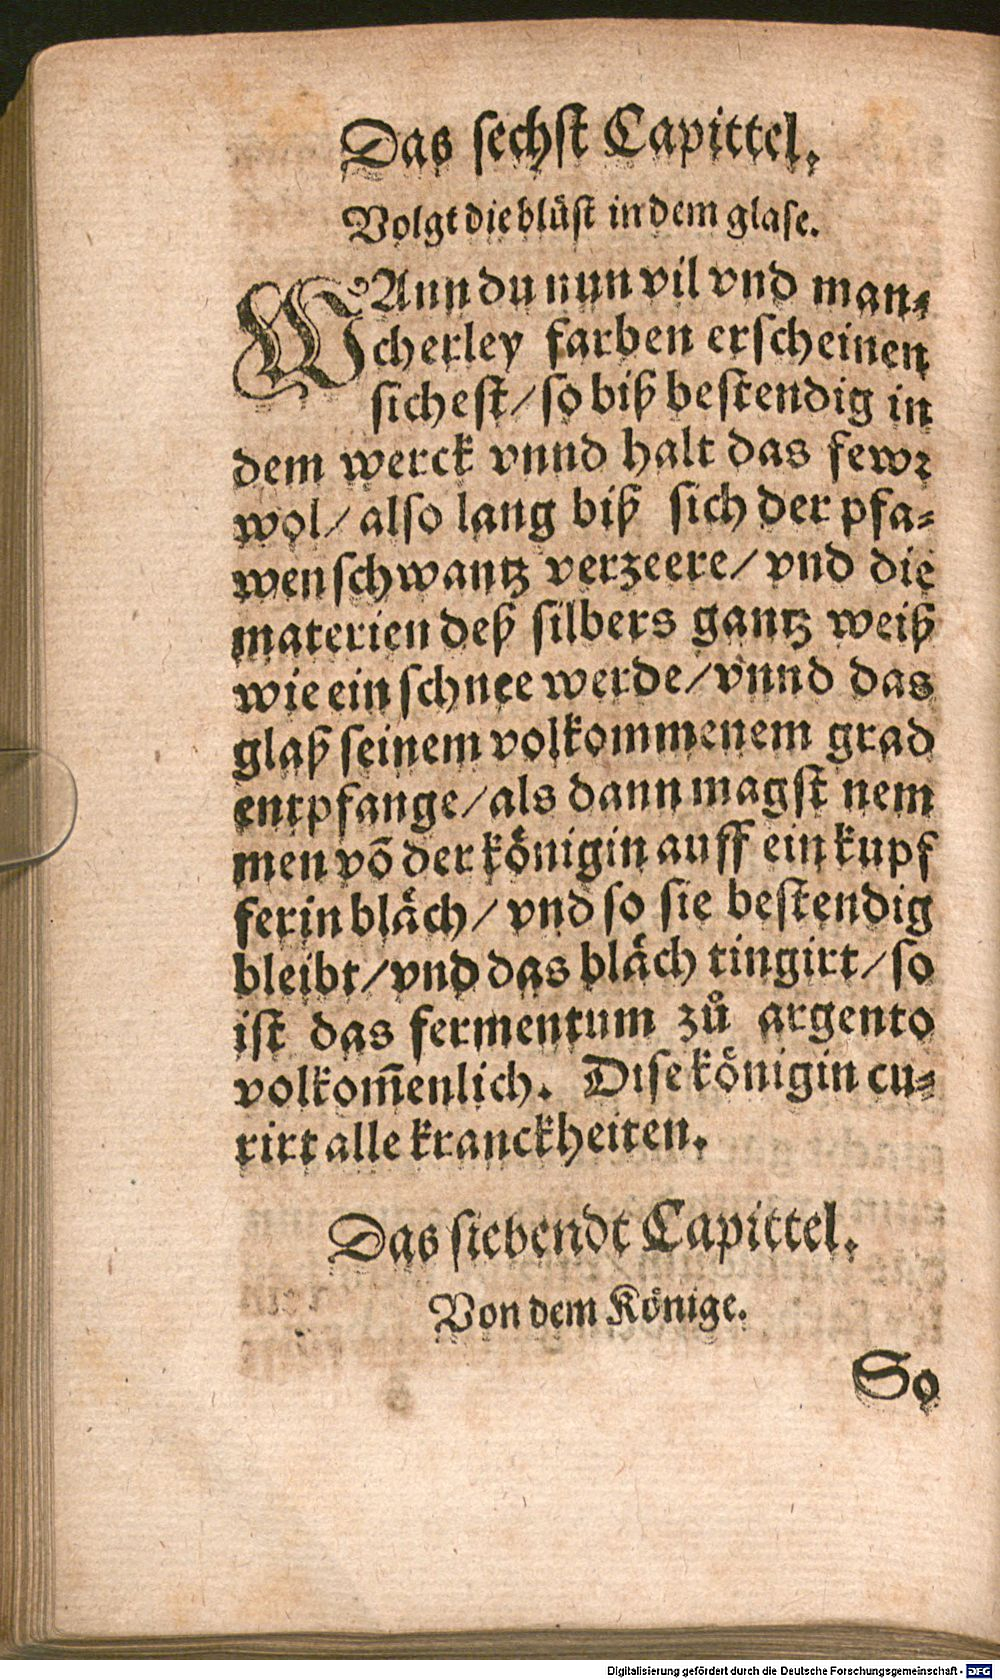 Das sechst Capittel.
Volgt die blüst in dem glase.
WAnn du nun vil vnd man⸗
cherley farben erscheinen
sichest/ so biß bestendig in
dem werck vnnd halt das fewꝛ
wol/ also lang biß sich der pfa⸗
wenschwantz verzeere/ vnd die
materien deß silbers gantz weiß
wie ein schnee werde/ vnnd das
glaß seinem volkommenem grad
entpfange/ als dann magst nem
men võ der königin auff ein kupf
ferin bläch/ vnd so sie bestendig
bleibt/ vnd das bläch tingirt/ so
ist das fermentum zů argento
volkom̃enlich. Dise königin cu⸗
rirt alle kranckheiten.
Das siebendt Capittel.
Von dem Könige.
So
Digitalisierung gefördert durch die Deutsche Forschungsgemeinschaft - DFG